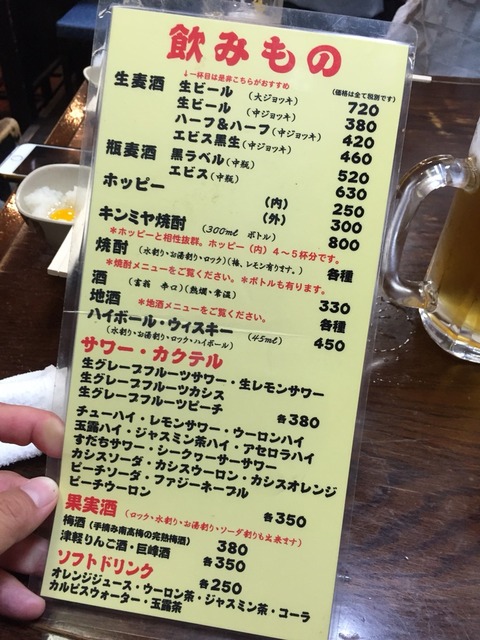 飲みもの
↓一杯目は是非こちらがおすすめ (価格は全て税別です)
生麦酒 生ビール (大ジョッキ) 720
生ビール (中ジョッキ) 380
ハーフ&ハーフ(中ジョッキ) 420
エビス黒生(中ジョッキ) 460
瓶麦酒 黒ラベル(中瓶) 520
エビス(中瓶) 630
ホッピー (内) 250
(外) 300
キンミヤ焼酎 (300ml ボトル) 800
*ホッピーと相性抜群。ホッピー(内)4〜5杯分です。
焼酎 (水割り・お湯割り・ロック)(梅、レモン有ります。) 各種
*焼酎メニューをご覧ください。*ボトルも有ります。
酒 (富翁 辛口)(熱燗・常温) 330
地酒 *地酒メニューをご覧ください。 各種
ハイボール・ウィスキー (45ml) 450
(水割り・お湯割り・ロック・ハイボール)
サワー・カクテル
生グレープフルーツサワー・生レモンサワー
生グレープフルーツカシス
生グレープフルーツピーチ 各380
チューハイ・レモンサワー・ウーロンハイ
玉露ハイ・ジャスミン茶ハイ・アセロラハイ
すだちサワー・シークヮーサーサワー
カシスソーダ・カシスウーロン・カシスオレンジ
ピーチソーダ・ファジーネーブル
ピーチウーロン 各350
果実酒 (ロック、水割り・お湯割り・ソーダ割りも出来ます)
梅酒(手摘み南高梅の完熟梅酒) 380
津軽りんご酒・巨峰酒 各350
ソフトドリンク 各250
オレンジジュース・ウーロン茶・ジャスミン茶・コーラ
カルピスウォーター・玉露茶